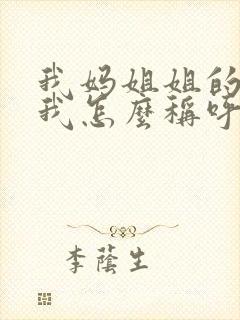 我妈姐姐的
我怎麼稱呼
李蔭生